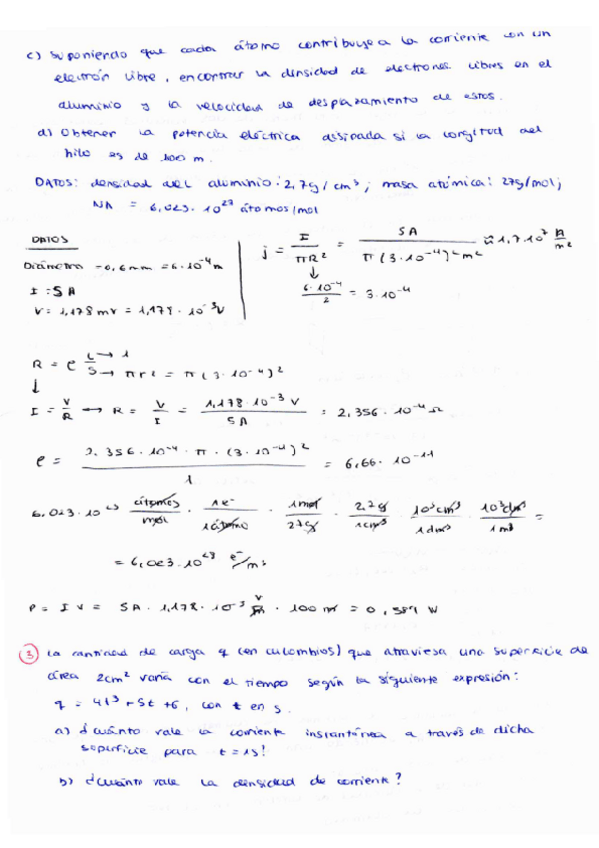 c) Suponiendo que cada átomo contribuye a la corriente con un
electrón libre, encontrar la densidad de electrones libres en el
aluminio y la velocidad de desplazamiento de estos.
d) Obtener la potencia eléctrica disipada si la longitud del
hilo es de 100 m.
DATOS: densidad del aluminio: 2,7g/cm³; masa atómica: 27g/mol;
NA = 6,023·10²³ átomos/mol
DATOS
Diámetro = 0,6mm = 6·10⁻⁴m
I = 5A
V = 1,178mV = 1,178·10⁻³V
j = I / πR² = 5A / π(3·10⁻⁴)²m² ≈ 1,7·10⁷ A/m²
↓
6·10⁻⁴ / 2 = 3·10⁻⁴
R = ρ L/S → 1 → πr² = π(3·10⁻⁴)²
↓
I = V/R → R = V/I = 1,178·10⁻³V / 5A = 2,356·10⁻⁴Ω
ρ = 2,356·10⁻⁴·π·(3·10⁻⁴)² / 1 = 6,66·10⁻¹¹
6,023·10²³ átomos/mol · 1e⁻/1átomo · 1mol/27g · 2,7g/1cm³ · 10³cm³/1dm³ · 10³dm³/1m³ =
= 6,023·10²⁸ e⁻/m³
P = I V = 5A · 1,178·10⁻³ V/m · 100 m = 0,589 W
③ La cantidad de carga q (en culombios) que atraviesa una superficie de
área 2cm² varía con el tiempo según la siguiente expresión:
q = 4t³+5t+6, con t en s.
a) ¿cuánto vale la corriente instantánea a través de dicha
superficie para t=1s?
b) ¿cuánto vale la densidad de corriente?